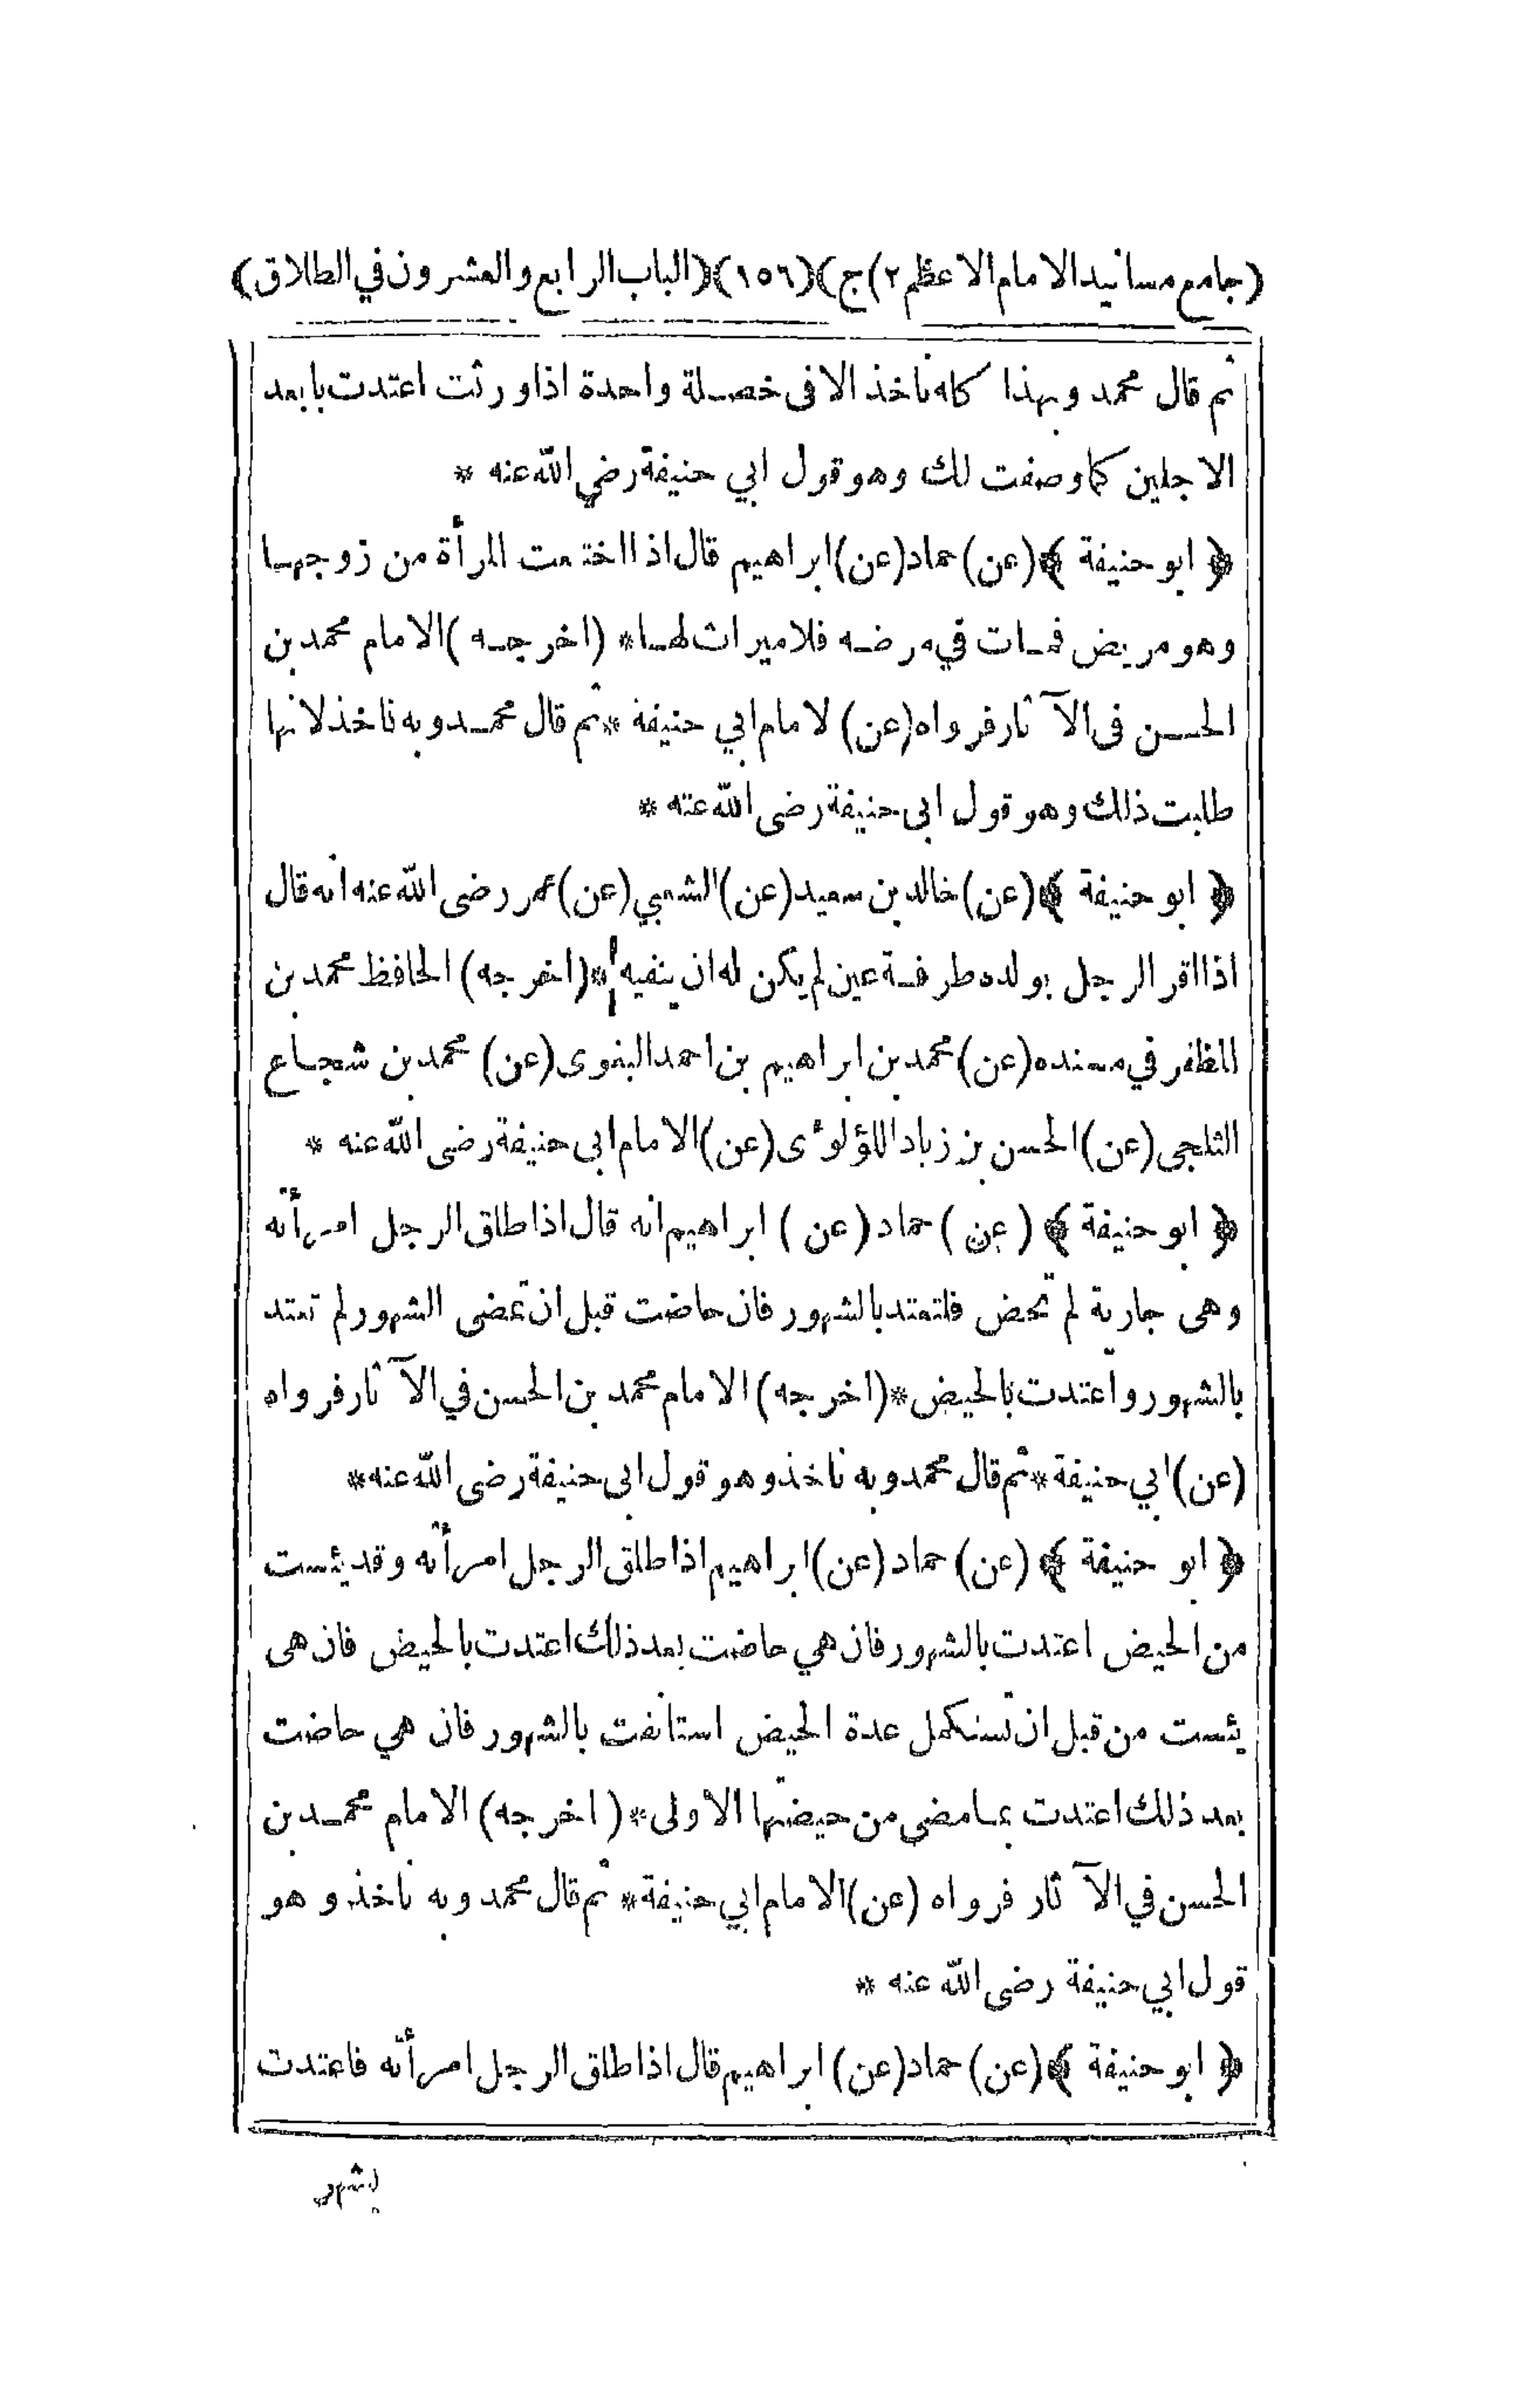 (جامع مسانيد الامام الاعظم ٢) ج) (١٥٦) (الباب الرابع والعشرون في الطلاق)
ثم قال محمد وبهذا كله ناخذ الا فى خصلة واحدة اذا ورثت اعتدت بابعد
الاجلين كما وصفت لك وهو قول ابي حنيفة رضي الله عنه *
﴿ ابو حنيفة ﴾ (عن) حماد (عن) ابراهيم قال اذا اختلعت المرأة من زوجها
وهو مريض فمات في مرضه فلا ميراث لها * (اخرجه) الامام محمد بن
الحسن فى الآثار فرواه (عن) لامام ابي حنيفة * ثم قال محمد وبه ناخذ لانها
طلبت ذلك وهو قول ابى حنيفة رضى الله عنه *
﴿ ابو حنيفة ﴾ (عن) خالد بن سعيد (عن) الشعبي (عن) عمر رضى الله عنه انه قال
اذا اقر الرجل بولده طرفة عين لم يكن له ان ينفيه * (اخرجه) الحافظ محمد بن
المظفر في مسنده (عن) محمد بن ابراهيم بن احمد البغوى (عن) محمد بن شجاع
الثلجى (عن) الحسن بن زياد اللؤلوئ (عن) الامام ابى حنيفة رضى الله عنه *
﴿ ابو حنيفة ﴾ (عن) حماد (عن) ابراهيم انه قال اذا طلق الرجل امرأته
وهى جارية لم تحض فلتعتد بالشهور فان حاضت قبل ان تمضى الشهور لم تعتد
بالشهور واعتدت بالحيض * (اخرجه) الامام محمد بن الحسن في الآثار فرواه
(عن) ابي حنيفة * ثم قال محمد وبه ناخذ وهو قول ابى حنيفة رضى الله عنه *
﴿ ابو حنيفة ﴾ (عن) حماد (عن) ابراهيم اذا طلق الرجل امرأته وقد يئست
من الحيض اعتدت بالشهور فان هي حاضت بعد ذلك اعتدت بالحيض فان هى
يئست من قبل ان تستكمل عدة الحيض استانفت بالشهور فان هي حاضت
بعد ذلك اعتدت بما مضى من حيضتها الاولى * (اخرجه) الامام محمد بن
الحسن في الآثار فرواه (عن) الامام ابي حنيفة * ثم قال محمد وبه ناخذ وهو
قول ابي حنيفة رضى الله عنه *
﴿ ابو حنيفة ﴾ (عن) حماد (عن) ابراهيم قال اذا طلق الرجل امرأته فاعتدت
بشهر